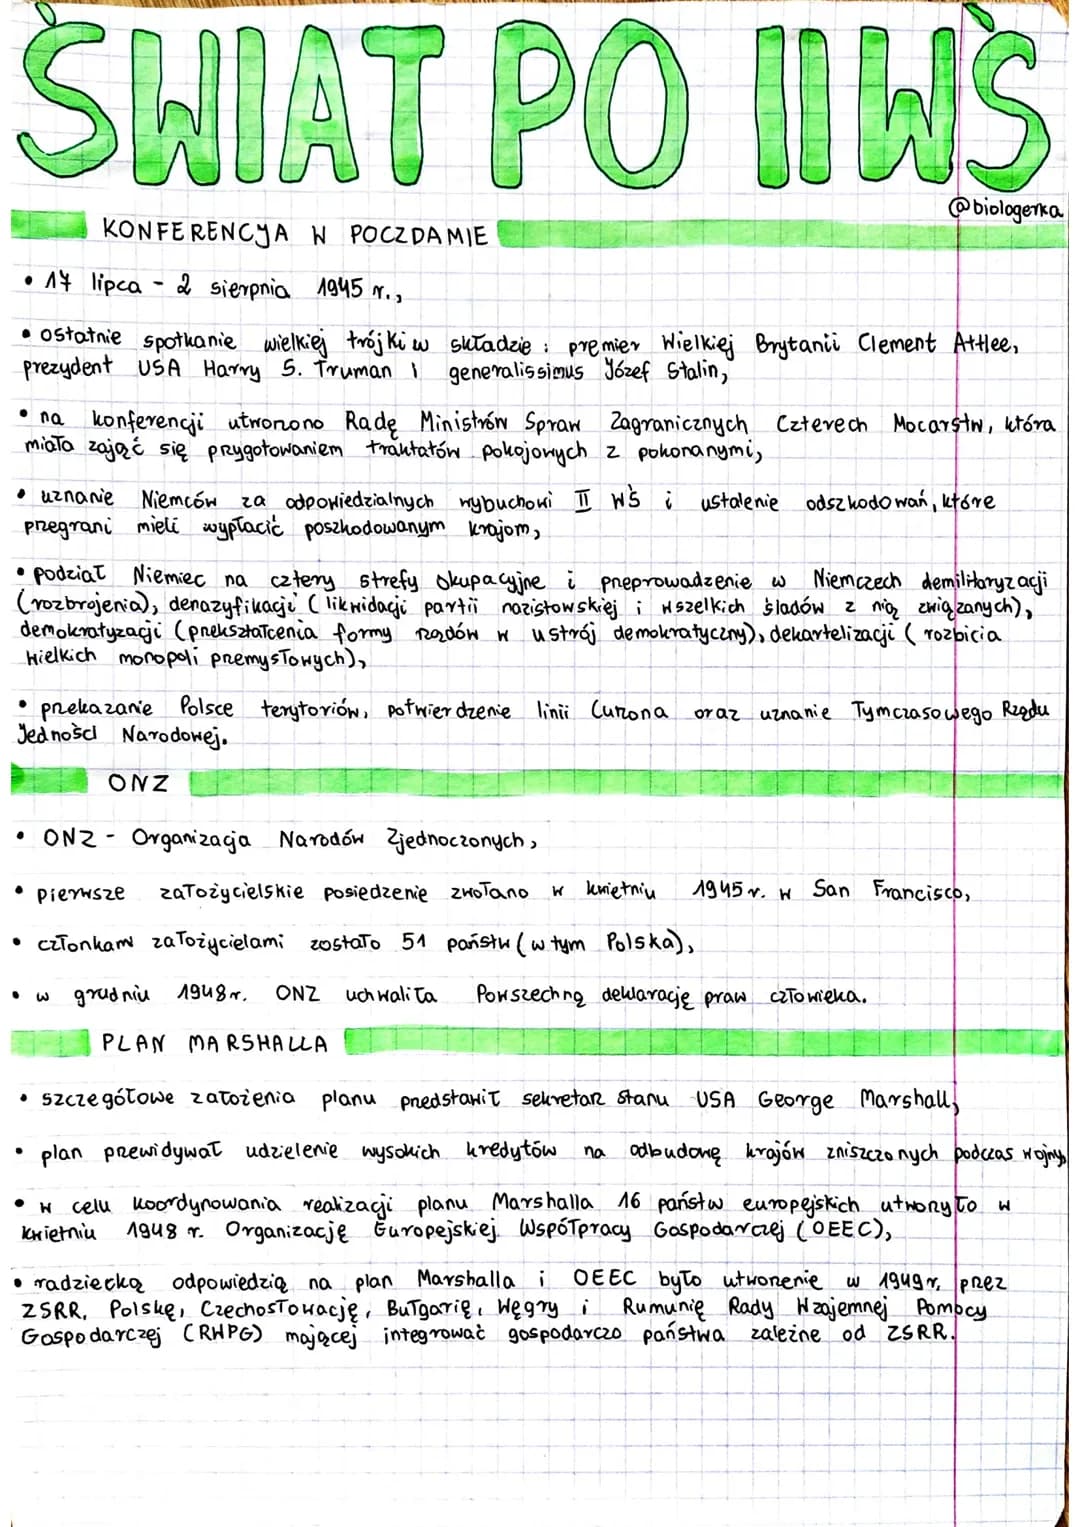 ŚWIAT PO II WŚ
@biologerka
KONFERENCJA W POCZDAMIE
• 17 lipca - 2 sierpnia 1945 r.,
• ostatnie spotkanie wielkiej trójki w składzie: premier Wielkiej Brytanii Clement Attlee,
prezydent USA Harry S. Truman i generalissimus Józef Stalin,
• na konferencji utworzono Radę Ministrów Spraw Zagranicznych Czterech Mocarstw, która
miała zająć się przygotowaniem traktatów pokojowych z pokonanymi,
• uznanie Niemców za odpowiedzialnych wybuchowi II WŚ i ustalenie odszkodowań, które
przegrani mieli wypłacić poszkodowanym krajom,
• podział Niemiec na cztery strefy okupacyjne i przeprowadzenie w Niemczech demilitaryzacji
(rozbrojenia), denazyfikacji (likwidacji partii nazistowskiej i wszelkich śladów z nią związanych),
demokratyzacji (przekształcenia formy rządów w ustrój demokratyczny), dekartelizacji (rozbicia
wielkich monopoli przemysłowych),
• przekazanie Polsce terytoriów, potwierdzenie linii Curzona oraz uznanie Tymczasowego Rządu
Jedności Narodowej.
ONZ
• ONZ - Organizacja Narodów Zjednoczonych,
• pierwsze założycielskie posiedzenie zwołano w kwietniu 1945 r. w San Francisco,
• członkami założycielami zostało 51 państw (w tym Polska),
• w grudniu 1948 r. ONZ uchwaliła Powszechną deklarację praw człowieka.
PLAN MARSHALLA
• szczegółowe założenia planu przedstawił sekretarz stanu USA George Marshall,
• plan przewidywał udzielenie wysokich kredytów na odbudowę krajów zniszczonych podczas wojny,
• w celu koordynowania realizacji planu Marshalla 16 państw europejskich utworzyło w
kwietniu 1948 r. Organizację Europejskiej Współpracy Gospodarczej (OEEC),
• radziecką odpowiedzią na plan Marshalla i OEEC było utworzenie w 1949 r. przez
ZSRR, Polskę, Czechosłowację, Bułgarię, Węgry i Rumunię Rady Wzajemnej Pomocy
Gospodarczej (RWPG) mającej integrować gospodarczo państwa zależne od ZSRR.